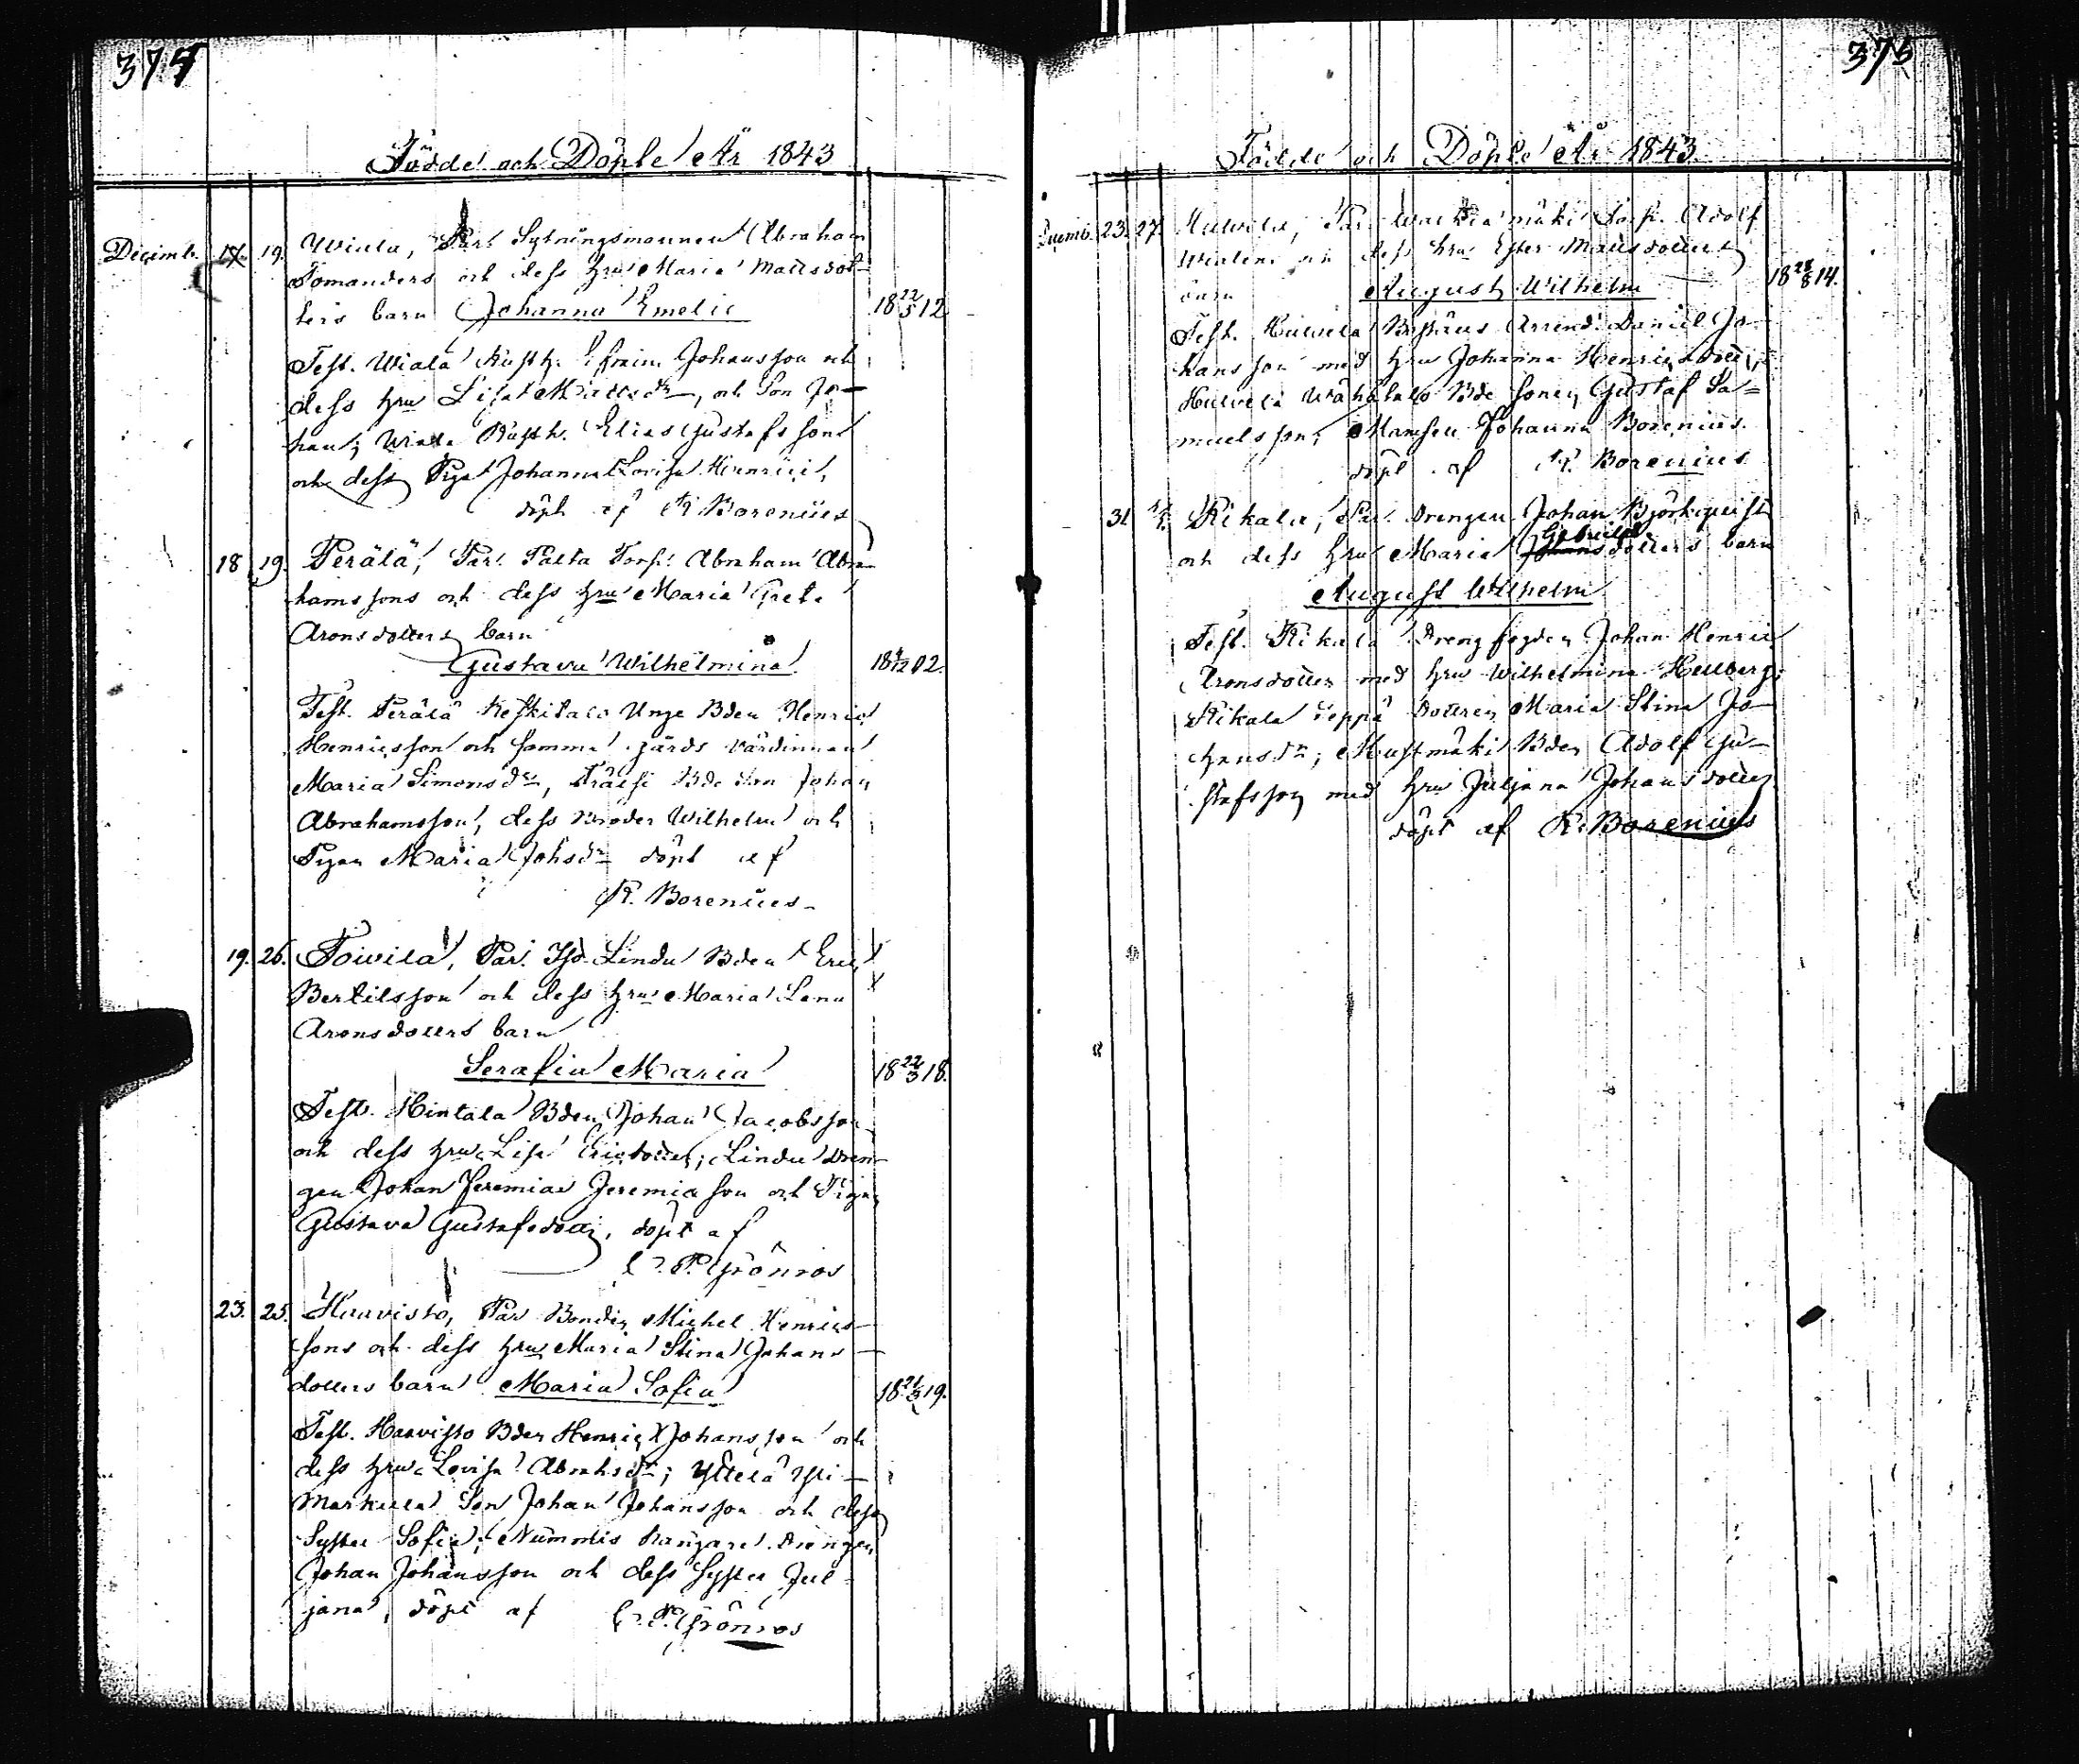 374
Födde och Döpte År 1843
Decimb. 17. 19. Wiala, Par. Sytningsmannen Abraham
Tomanders och dess hru Maria Mattsdot-
ters barn Johanna Emelie 18 22/5 12.
Test. Wiala Rusth. Efraim Johansson och
dess hru Lisa Mattsdr, och Son Jo-
han; Wiala Rusth. Elias Gustafssons
och dess Piga Johanna Lovisa Henrici,
döpt af R Borenius
18 19. Perälä, Par. Palta Torp. Abraham Abra-
hamssons och dess hru Maria Greta
Aronsdotters barn
Gustava Wilhelmina 18 4/12 02.
Test. Perälä Keskitalo Unge Bden Henric
Henricsson och samma gårds värdinnan
Maria Simonsdr, Bde Son Johan
Abrahamsson, dess Broder Wilhelm och
Pigan Maria Johsdr döpt af
R. Borenius
19. 26. Toivila, Par. Lindu Bden Eric
Bertilsson och dess hru Maria Lena
Aronsdotters barn
Serafia Maria 18 22/3 18.
Test. Hintala Bden Johan Jacobsson
och dess hru Lisa Ericsdotter; Lindu Dren-
gen Johan Jeremias Jeremiasson och Pigan
Gustava Gustafsdotter, döpt af
C. P. Grönroos
23. 25. Haavisto, Par. Bonden Michel Henrics-
sons och dess hru Maria Stina Johans-
dotters barn Maria Sofia 18 21/3 19.
Test. Haavisto Bden Henric Johansson och
dess hru Lovisa Abrahsdr; Ylttelä Yli-
Markula Son Johan Johansson och dess
Syster Sofia; Nummis Drengen
Johan Johansson och dess Syster Jul-
jana, döpt af C. P. Grönroos
375
Födde och Döpte År 1843.
Decemb. 23. 27. Huivila, Par. Torp. Adolf
dess hru Ester Mattsdotters
barn August Wilhelm 18 28/8 14.
Test. Huivila Arrend. Daniel Jo-
hansson med hru Johanna Henricsdotter,
Huivila Wähätalo Bde sonen Gustaf Sa-
muelsson; Mamsell Johanna Borenius.
döpt af R. Borenius
31. 1/1. Kikala, Par. Drengen Johan Björkqvists
och dess hru Maria Gabriels
dotters barn
August Wilhelm
Test. Kikala Drengfogden Johan Henric
Aronsdotter med hru Wilhelmina Hellberg;
Kikala Seppä dottren Maria Stina Jo-
hansdr; Mustmäki Bden Adolf Gu-
stafsson med hru Juljana Johansdotter
döpt af R. Borenius